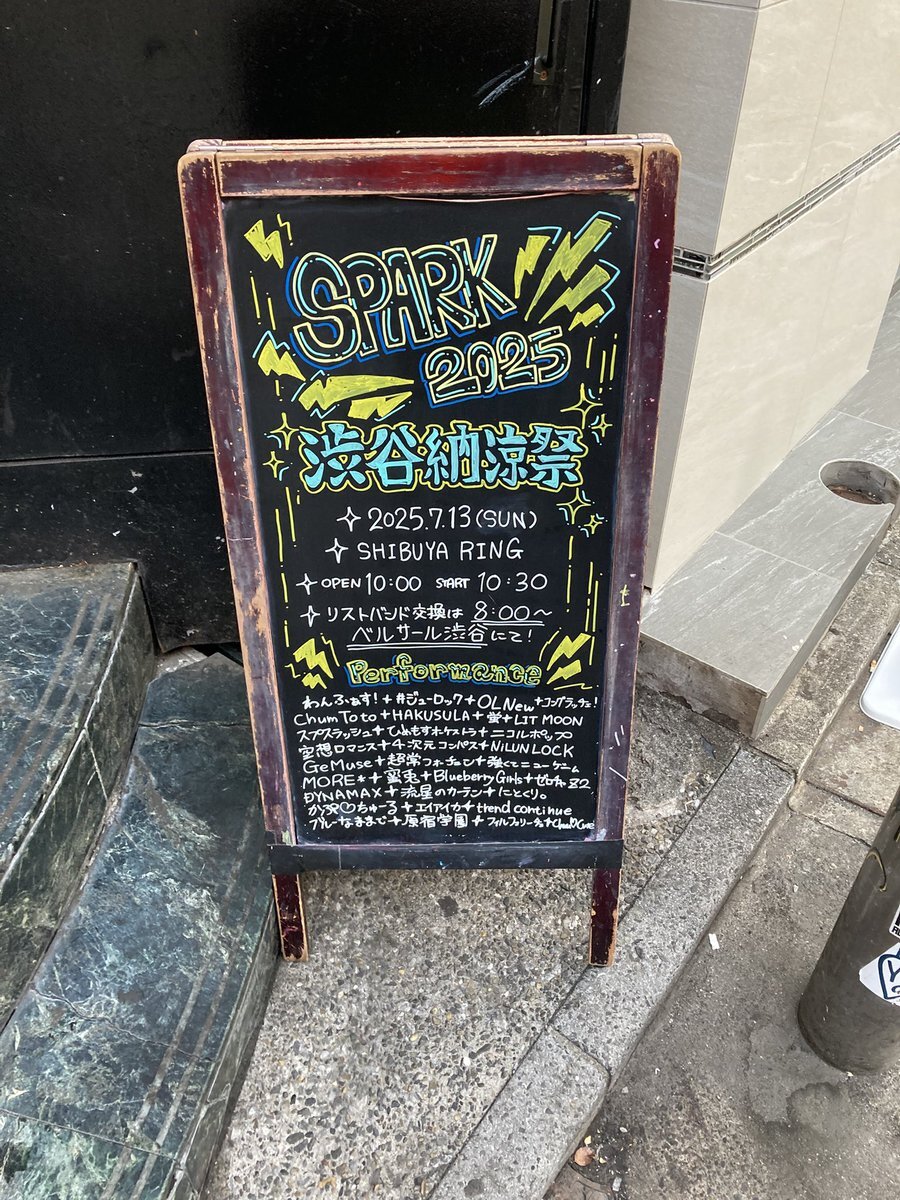 SPARK
2025
渋谷納涼祭
2025.7.13(SUN)
SHIBUYA RING
OPEN 10:00 START 10:30
リストバンド交換は 8:00〜
ベルサール渋谷にて!
Performance
わんふぁす!+#ジューロック+OLNew+コングラッチェ!
ChumToto+HAKUSULA+蛍+LIT MOON
スプスラッシュ+ひめもすオーケストラ+ニコルポップ
空想ロマニス+4次元コンパス+NiLUNLOCK
GeMuse+超常フォーチュン+強くてニューゲーム
MORE*+蜜兎+Blueberry Girls+ゼロチャ
DYNAMAX+流星のカーテン+にとくり。
ちゅーる+エイアイカ+trend continue
ブルーなままで+原宿学園+フィルフィリーチェ+Chuu♡Cute